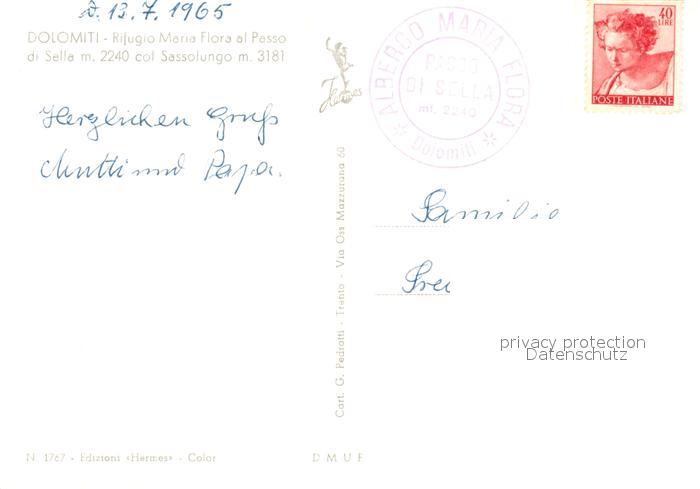 d. 13.7.1965
DOLOMITI - Rifugio Maria Flora al Passo
di Sella m. 2240 col Sassolungo m. 3181
Herzlichen Gruß
Mutti und Papa.
Hermes
ALBERGO MARIA FLORA
PASSO
DI SELLA
mt. 2240
Dolomiti
40
LIRE
POSTE ITALIANE
Familie
Frei
privacy protection
Datenschutz
Cart. G. Pedrotti - Trento - Via Oss Mazzurana 60
N. 1767 - Edizioni «Hermes» - Color
D M U F